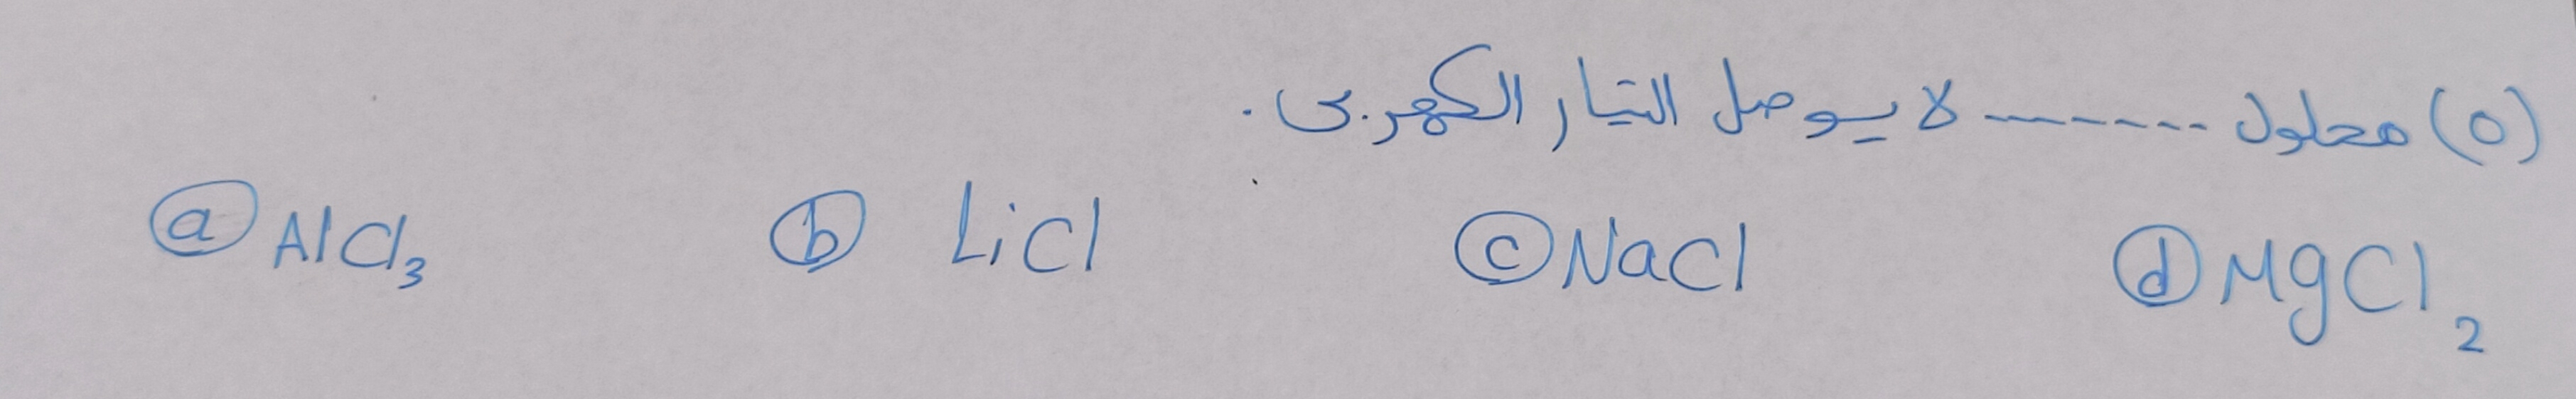 (٥) محلول ------- لا يوصل التيار الكهربى .
ⓐ AlCl₃ ⓑ LiCl ⓒ NaCl ⓓ MgCl₂